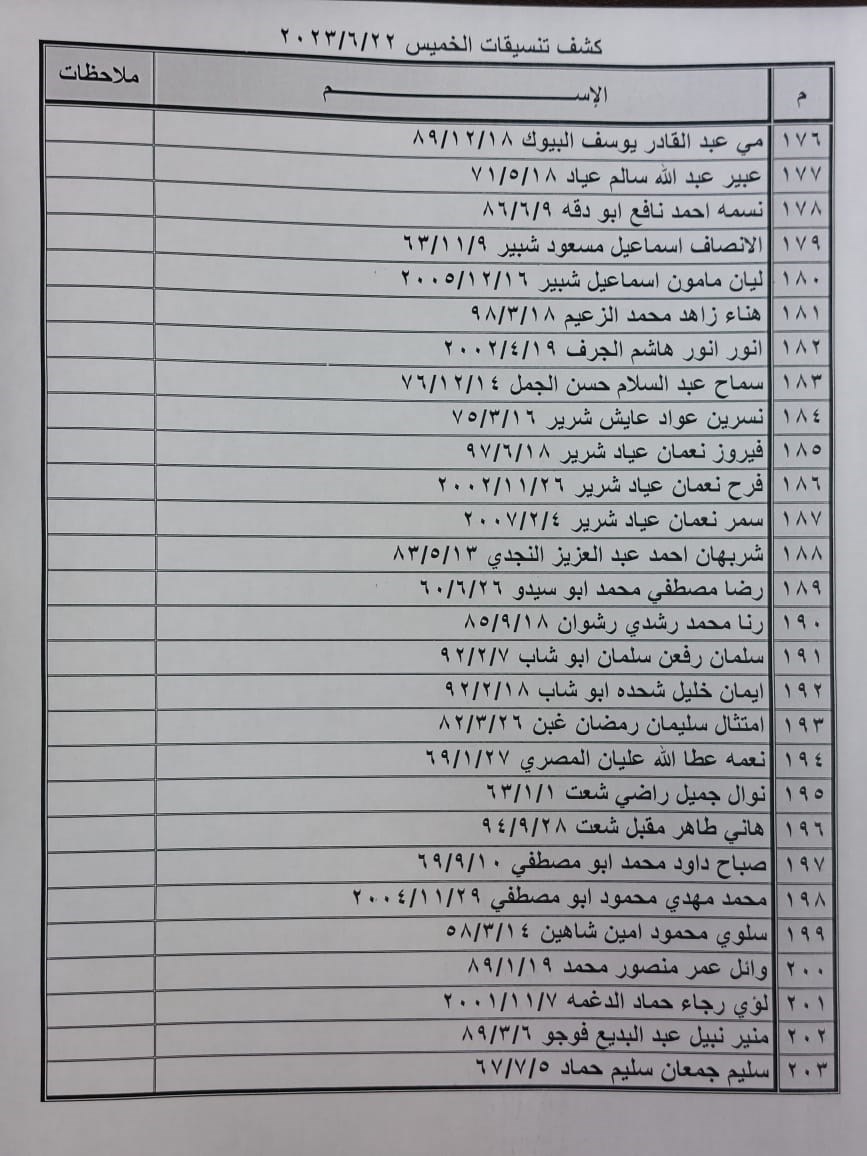 كشف تنسيقات الخميس ٢٠٢٣/٦/٢٢
م الإســـــــــــــــــــــــــــــــــم ملاحظات
١٧٦ مي عبد القادر يوسف البيوك ٨٩/١٢/١٨
١٧٧ عبير عبد الله سالم عياد ٧١/٥/١٨
١٧٨ نسمه احمد نافع ابو دقه ٨٦/٦/٩
١٧٩ الانصاف اسماعيل مسعود شبير ٦٣/١١/٩
١٨٠ ليان مامون اسماعيل شبير ٢٠٠٥/١٢/١٦
١٨١ هناء زاهد محمد الزعيم ٩٨/٣/١٨
١٨٢ انور انور هاشم الجرف ٢٠٠٢/٤/١٩
١٨٣ سماح عبد السلام حسن الجمل ٧٦/١٢/١٤
١٨٤ نسرين عواد عايش شرير ٧٥/٣/١٦
١٨٥ فيروز نعمان عياد شرير ٩٧/٦/١٨
١٨٦ فرح نعمان عياد شرير ٢٠٠٢/١١/٢٦
١٨٧ سمر نعمان عياد شرير ٢٠٠٧/٢/٤
١٨٨ شريهان احمد عبد العزيز النجدي ٨٣/٥/١٣
١٨٩ رضا مصطفي محمد ابو سيدو ٦٠/٦/٢٦
١٩٠ رنا محمد رشدي رشوان ٨٥/٩/١٨
١٩١ سلمان رفعن سلمان ابو شاب ٩٢/٢/٧
١٩٢ ايمان خليل شحده ابو شاب ٩٢/٢/١٨
١٩٣ امتثال سليمان رمضان غبن ٨٢/٣/٢٦
١٩٤ نعمه عطا الله عليان المصري ٦٩/١/٢٧
١٩٥ نوال جميل راضي شعت ٦٣/١/١
١٩٦ هاني طاهر مقبل شعت ٩٤/٩/٢٨
١٩٧ صباح داود محمد ابو مصطفي ٦٩/٩/١٠
١٩٨ محمد مهدي محمود ابو مصطفي ٢٠٠٤/١١/٢٩
١٩٩ سلوي محمود امين شاهين ٥٨/٣/١٤
٢٠٠ وائل عمر منصور محمد ٨٩/١/١٩
٢٠١ لؤي رجاء حماد الدغمه ٢٠٠١/١١/٧
٢٠٢ منير نبيل عبد البديع فوجو ٨٩/٣/٦
٢٠٣ سليم جمعان سليم حماد ٦٧/٧/٥